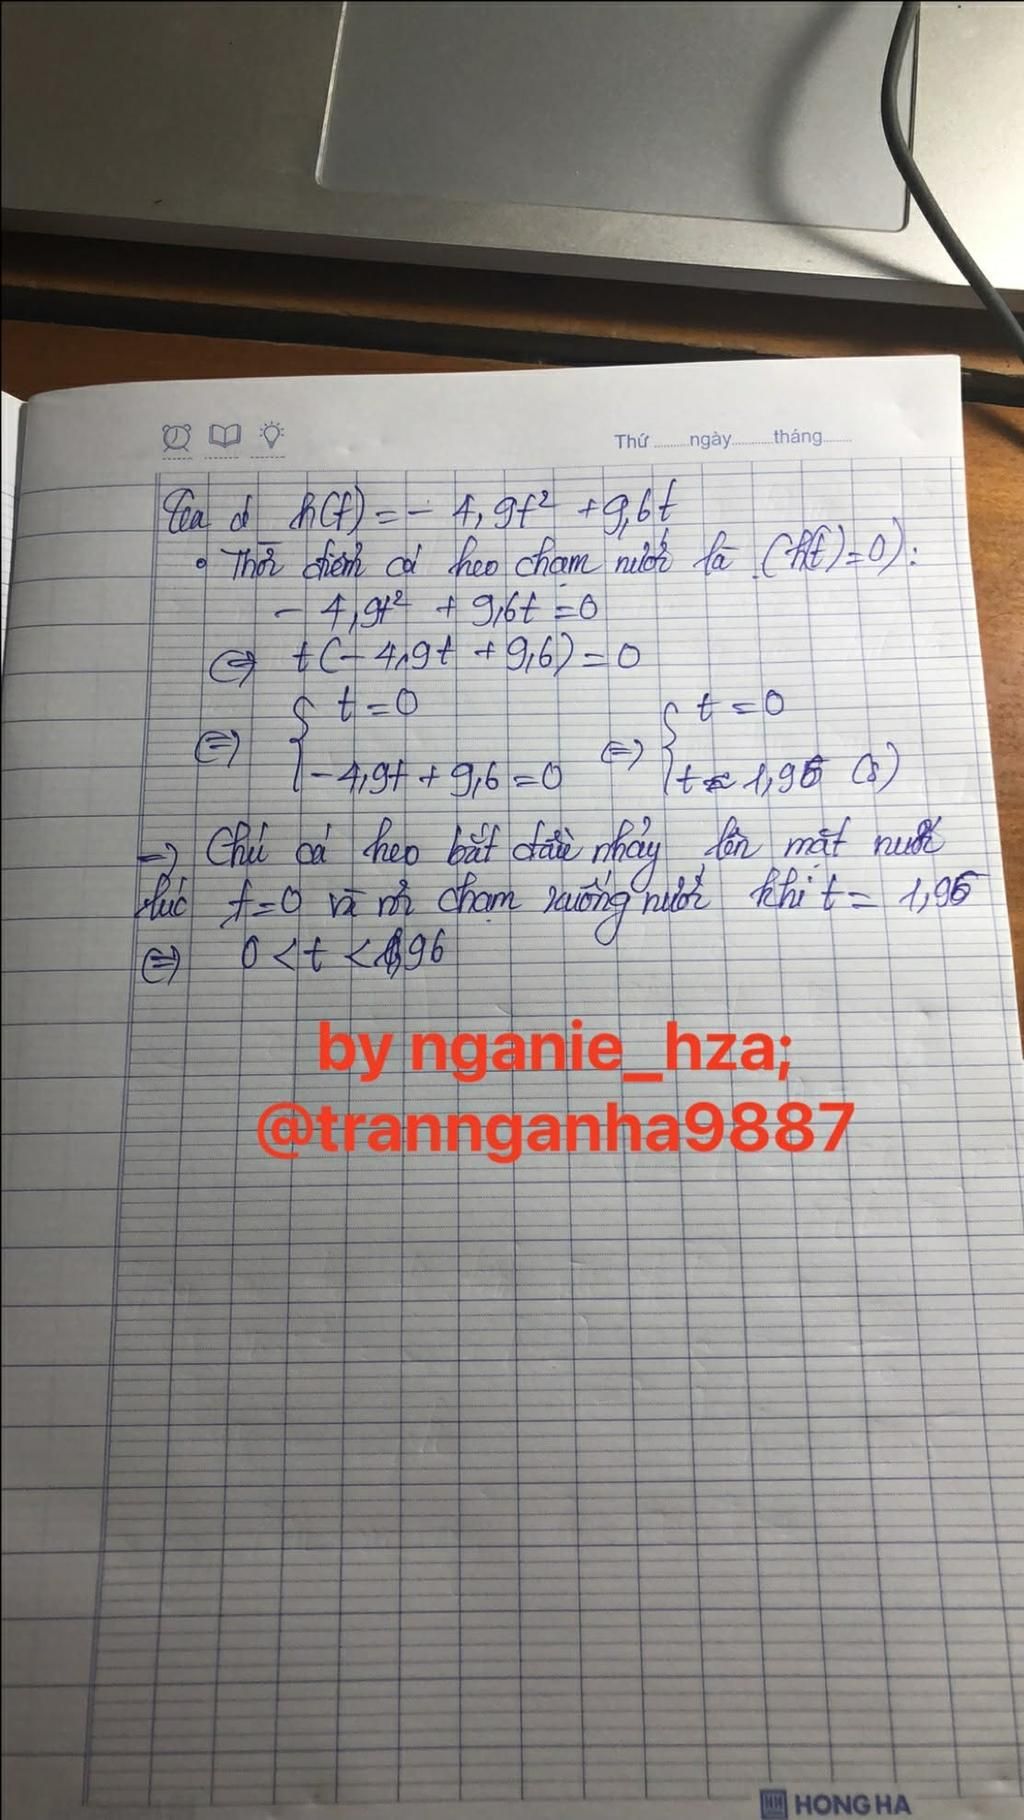 Thứ ngày tháng
Ta có h(t) = - 4,9t² + 9,6t
• Thời điểm cá heo chạm nước là (h(t) = 0):
- 4,9t² + 9,6t = 0
⇔ t(- 4,9t + 9,6) = 0
⇔ { t = 0 ⇔ { t = 0
- 4,9t + 9,6 = 0 t ≈ 1,96 (s)
→ Chú cá heo bắt đầu nhảy lên mặt nước
lúc t = 0 và rơi chạm xuống nước khi t = 1,96
⇔ 0 < t < 1,96
by nganie_hza;
@trannganha9887
HONG HA